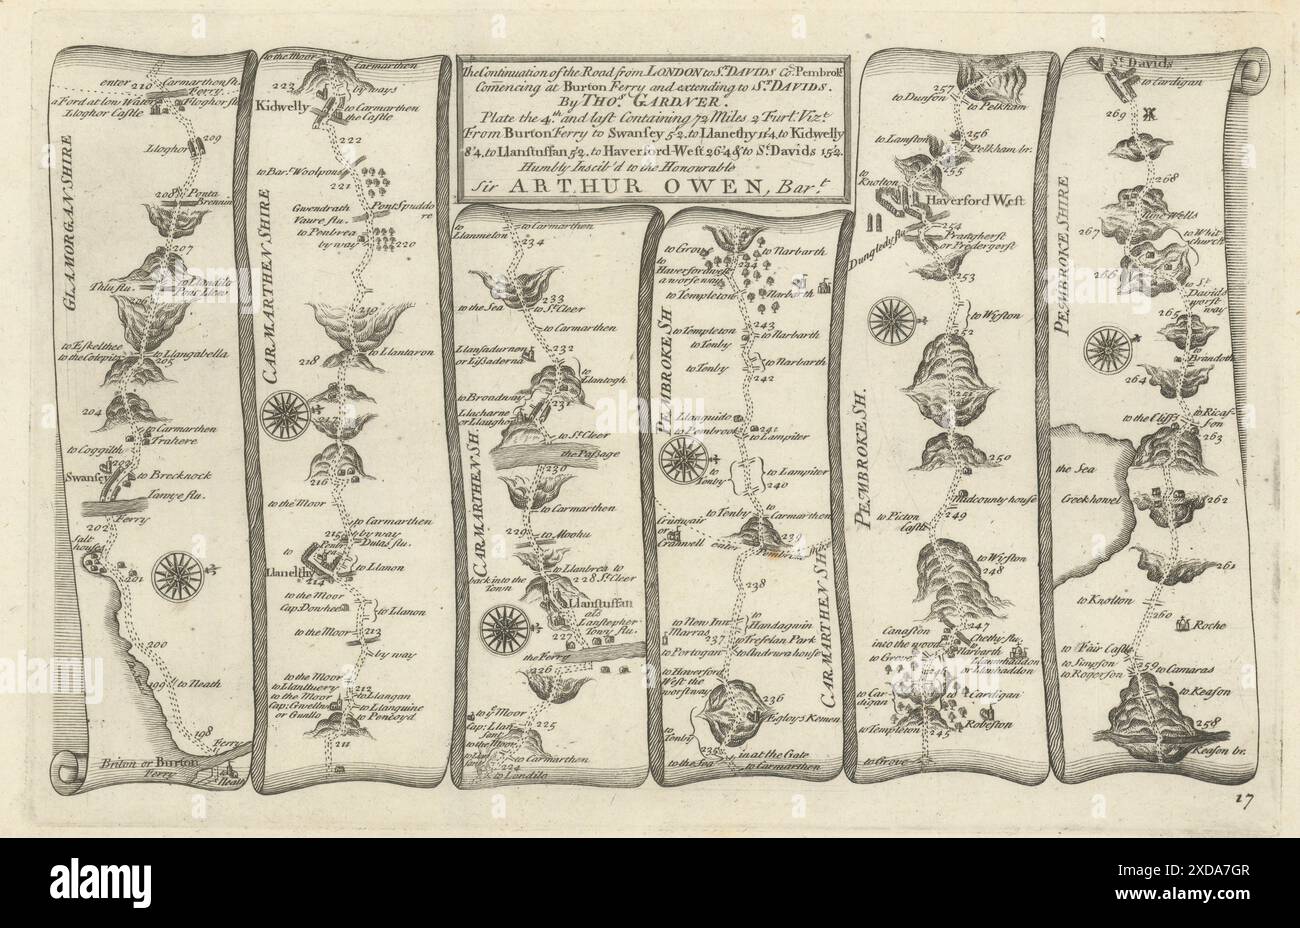 The Continuation of the Road from LONDON to St. DAVIDS Co. Pembrok
Comencing at Burton Ferry and extending to St. DAVIDS.
By THOs. GARDNER.
Plate the 4th and last Containing 72 Miles 2 Furl. Vizt.
From Burton Ferry to Swansey 5'2, to Llanelhy 11'4, to Kidwelly
8'4, to Llanstuffan 5'2, to Haverford-West 26'4 & to St. Davids 15'2.
Humbly Inscib'd to the Honourable
Sir ARTHUR OWEN, Bart.
GLAMORGAN SHIRE
enter
Carmarthensh.
210
Ferry
a Ford at low Water
Lloghor flu.
Lloghor Castle
209
Lloghor
208
Ponta
Brenin
207
to Llandilo
Pont Llew
206
to Eskelthee
to the Colepits
to Llangabella
205
204
to Carmarthen
Trahere
to Coggilth
203
to Brecknock
Swansey
Tawye flu.
Ferry
202
Salt
house
201
200
199
to Neath
198
Ferry
Briton or Burton
Ferry
Neath
CARMARTHEN SHIRE
to the Moor
Carmarthen
223
by ways
Kidwelly
to Carmarthen
the Castle
222
to Bar. Woolpons
221
Gwendrath
Vaure flu.
Pont Spuddo
re
to Penbrea
by way
220
219
218
to Llantaron
217
216
to the Moor
to Carmarthen
215
by way
Dulas flu.
to
Llanelthy
to Llanon
214
to the Moor
Cap: Donhee
to Llanon
to the Moor
213
by way
to the Moor
to Llanthuery
to the Moor
Cap: Gwellun
or Gunllo
212
to Llangan
to Llanguine
to Peneoyd
211
CARMARTHEN SH.
to
Llanmelon
to Carmarthen
234
233
to the Sea
to St. Cleer
to Carmarthen
232
Llansadurnen
or Lissaderne
to
Llantogh
to Broadway
231
Llacharne
or Llaughor
to St. Cleer
the Passage
230
to Carmarthen
229
to Moohu
to Llanbrea to
228 St. Cleer
back into the
Town
Llanstuffan
als
Lanstepher
227
Towy flu.
the Ferry
226
to ye Moor
225
Cap: Llan
to the Moor
to Carmarthen
224
to Landilo
PEMBROKE SH
CARMARTHEN SH.
to Grove
to Narbarth
244
to
Haverfordwest
a worse way
to Templeton
Narbarth
243
to Templeton
to Narbarth
to Tenby
to Narbarth
to Tenby
242
Llanguido
to Pembrook
241
to Lampiter
to
Tenby
to Lampiter
240
to Tenby
to Carmarthen
Crunwair
or
Cranwell
239
enter
Pembroke shire
238
to New Inn
Marras
to
Handaguin
237
to Trefelan Park
to Portogan
to Andrura house
to Haverford
West the
worst way
236
to
Tenby
Egloys Kemen
235
in at the Gate
to the Sea
to Carmarthen
PEMBROKE SH.
257
to Dunson
to Pelkham
256
to Lamston
Pelkham br.
255
to
Knolton
Haverford West
254
Pratgherst
or Predergorst
Dungledy flu
253
to Wyston
252
251
250
Midcounty house
to Picton
Castle
249
to Wyston
248
247
Canaston
into the wood
Chethy flu.
to Grove
Narbarth
Llanwhaddon
or Llanhaddon
246
to Car-
digan
to Cardigan
to Templeton
245
Robeston
to Grove
PEMBROKE SHIRE
St. Davids
to Cardigan
269
268
Nine Wells
267
to Whit
church
266
to St.
Davids
worst
way
265
to
Brandoth
264
to the Cliffs
to Ricas-
son
263
the Sea
Geekhovel
262
261
to Knolton
260
Roche
to Fair Castle
to Simpson
to Rogerson
259
to Camaras
to Keason
258
Keason br.
17
alamy
Image ID: 2XDA7GR
www.alamy.com